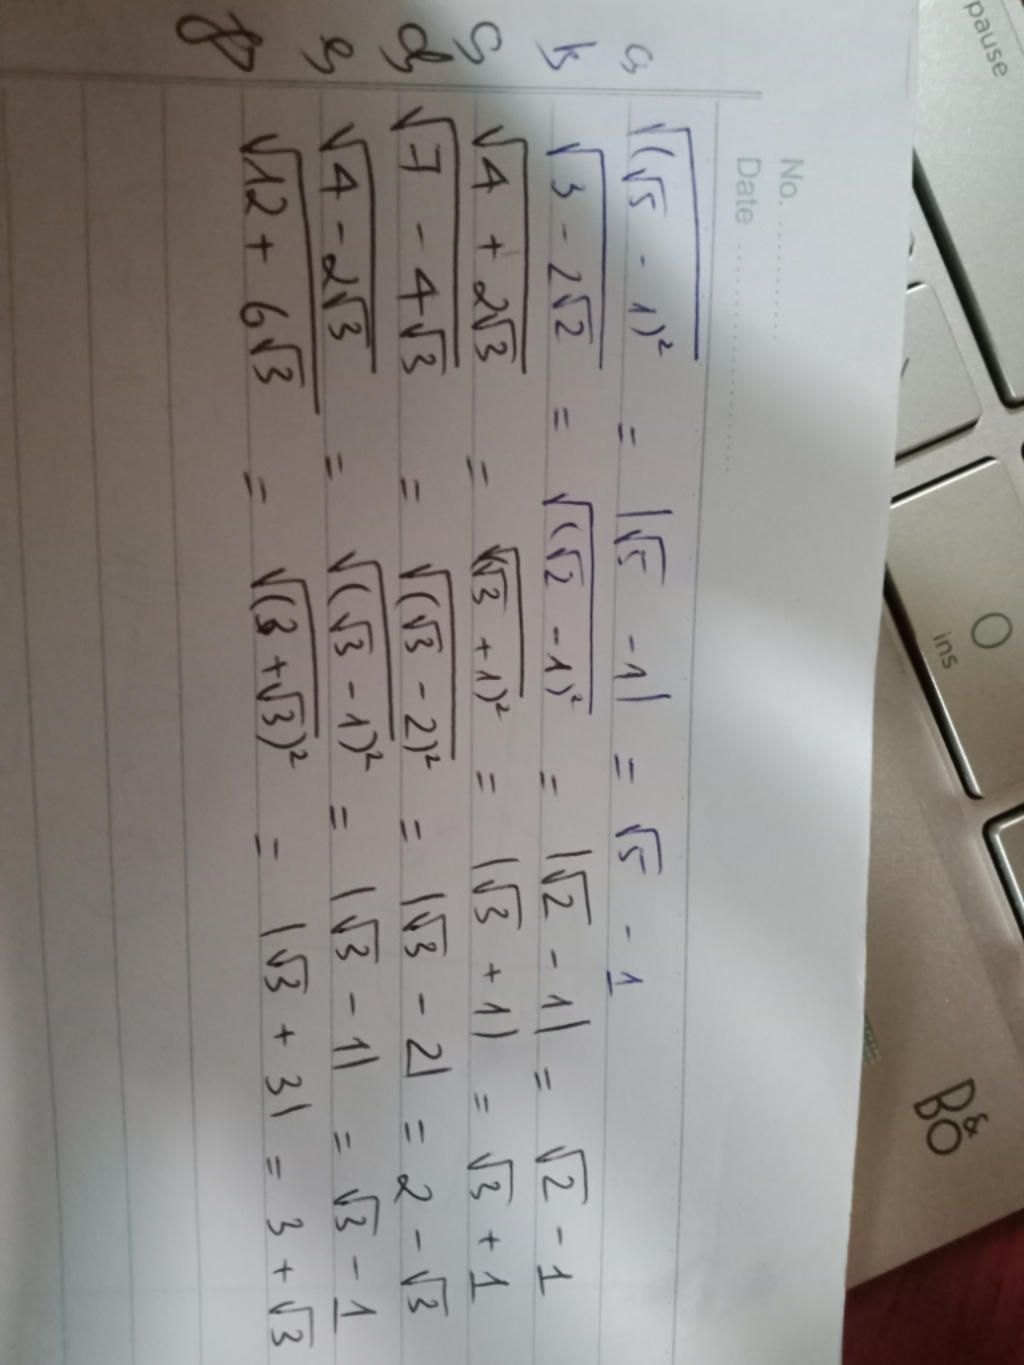 No. ............
Date ....................
a, √((√5 - 1)² = |√5 - 1| = √5 - 1
b, √(3 - 2√2) = √((√2 - 1)²) = |√2 - 1| = √2 - 1
c, √(4 + 2√3) = √((√3 + 1)²) = |√3 + 1| = √3 + 1
d, √(7 - 4√3) = √((√3 - 2)²) = |√3 - 2| = 2 - √3
e, √(4 - 2√3) = √((√3 - 1)²) = |√3 - 1| = √3 - 1
f, √(12 + 6√3) = √((3 + √3)²) = |√3 + 3| = 3 + √3
pause
ins
B&O